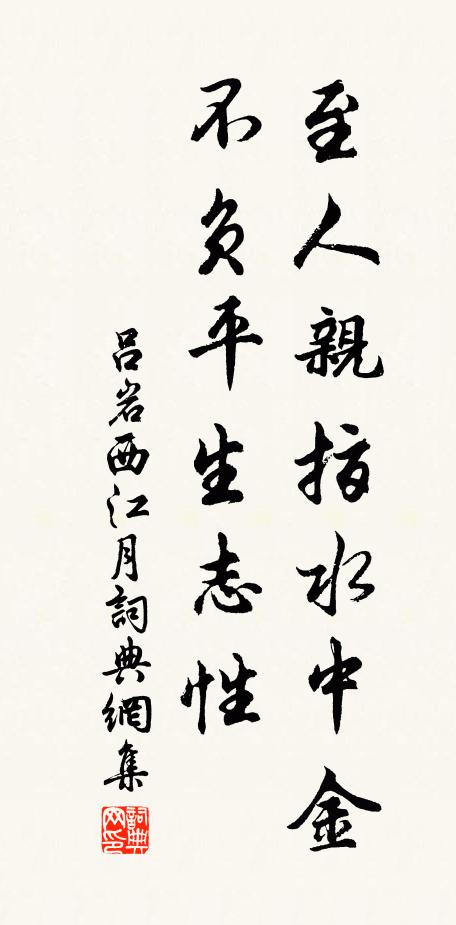 至人親指水中金
不負平生志性
吕岩西江月詞典網集
詞典網印